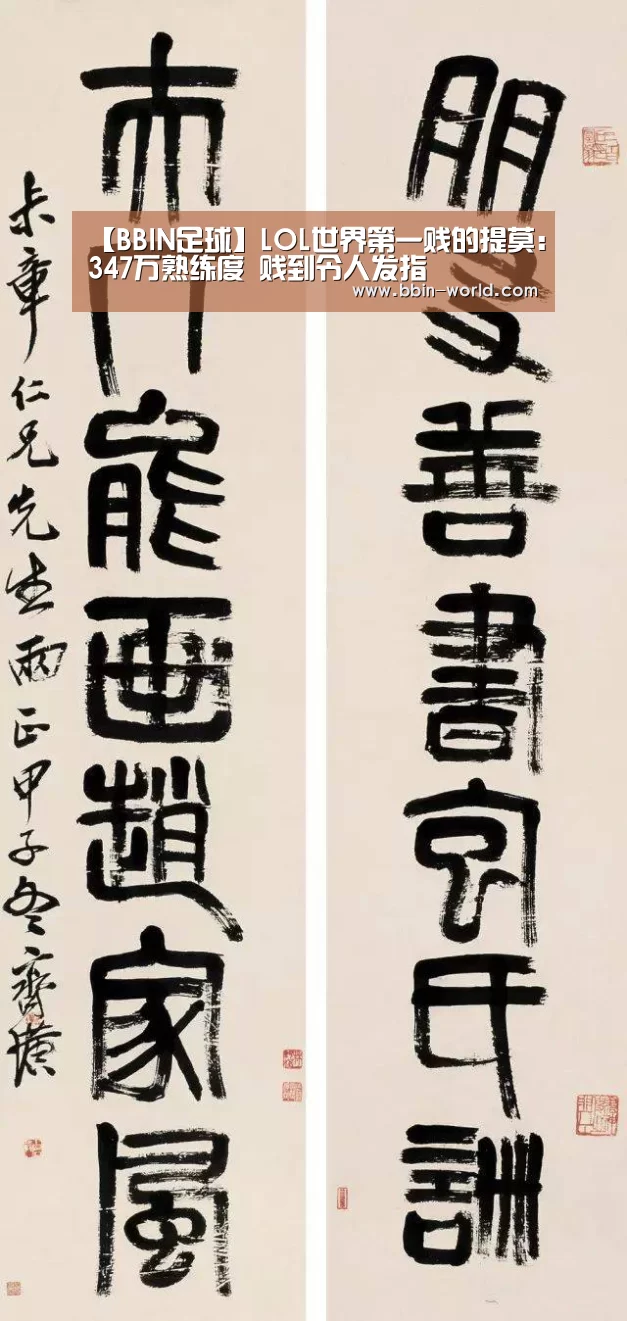 【BBIN足球】LOL世界第一贱的提莫：
347万熟练度 贱到令人发指
www.bbin-world.com
朋善書氏訓
能画趙家風
尗章仁兄先生兩正甲子冬齊璜